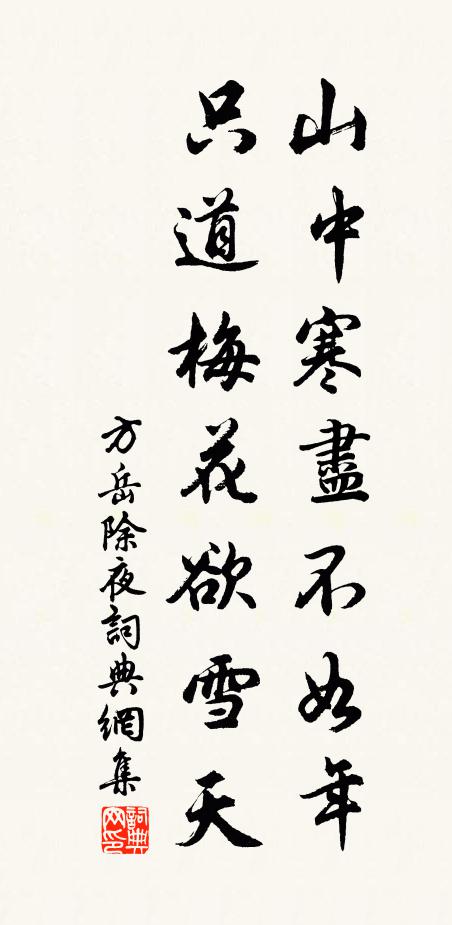 山中寒盡不如年
只道梅花欲雪天
方岳除夜詞典網集
詞典网印